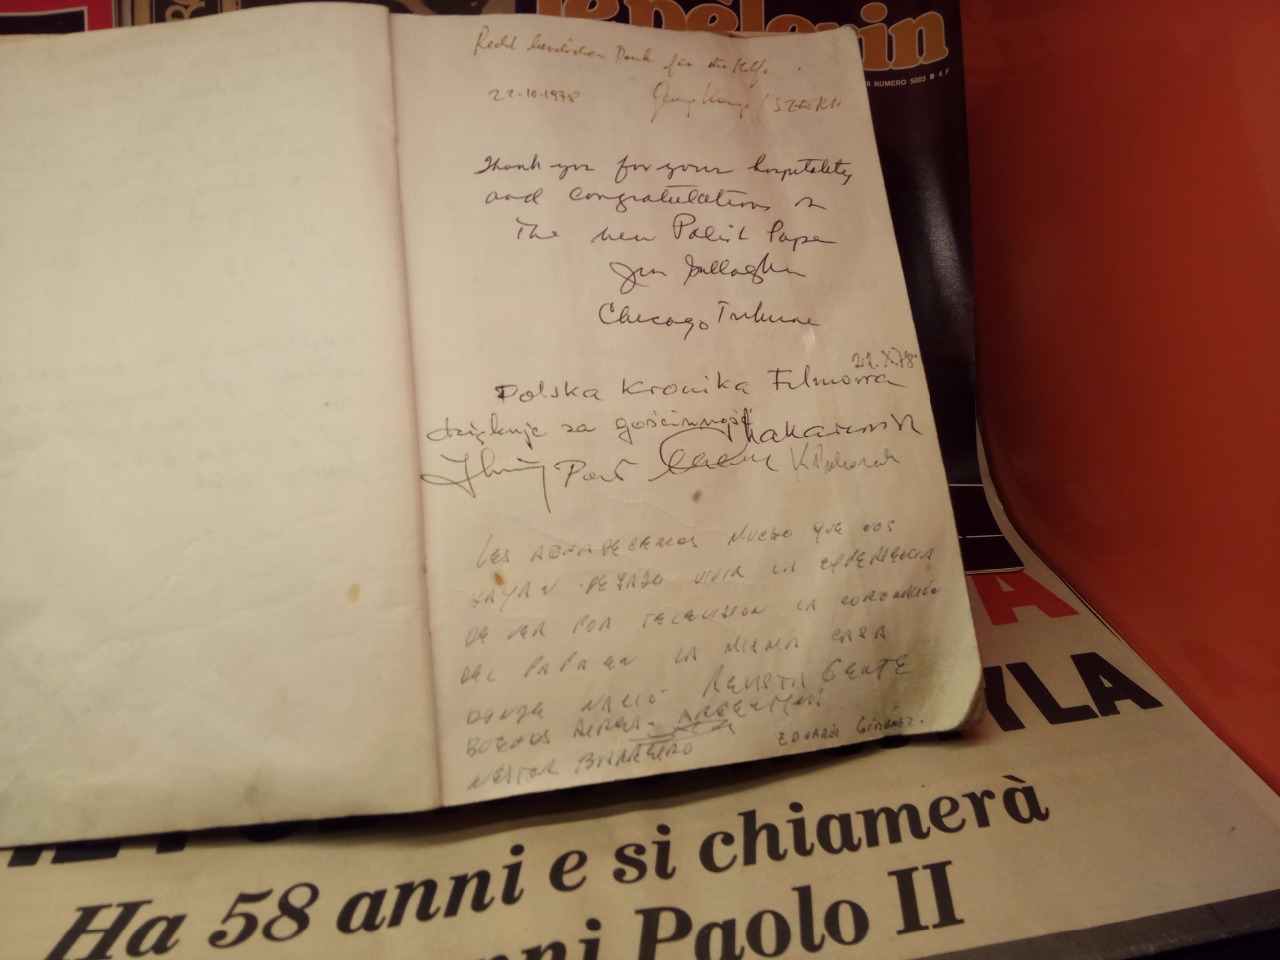 le pelerin
NUMERO 5003 • 4 F
Recht herzlichen Dank für die Hilfe.
22.10.1978
STERN
Thank you for your hospitality
and congratulations on
The new Polish Pope
Jim Gallagher
Chicago Tribune
21.X.78
Polska Kronika Filmowa
dziękuje za gościnność
LES AGRADECEMOS MUCHO QUE NOS
HAYAN DEJADO VIVIR LA EXPERIENCIA
DE VER POR TELEVISION LA CORONACIÓN
DEL PAPA EN LA MISMA CASA
DONDE NACIÓ REVISTA GENTE
BUENOS AIRES - ARGENTINA
NESTOR EDUARDO GIMÉNEZ.
A
YLA
Ha 58 anni e si chiamerà
nni Paolo II